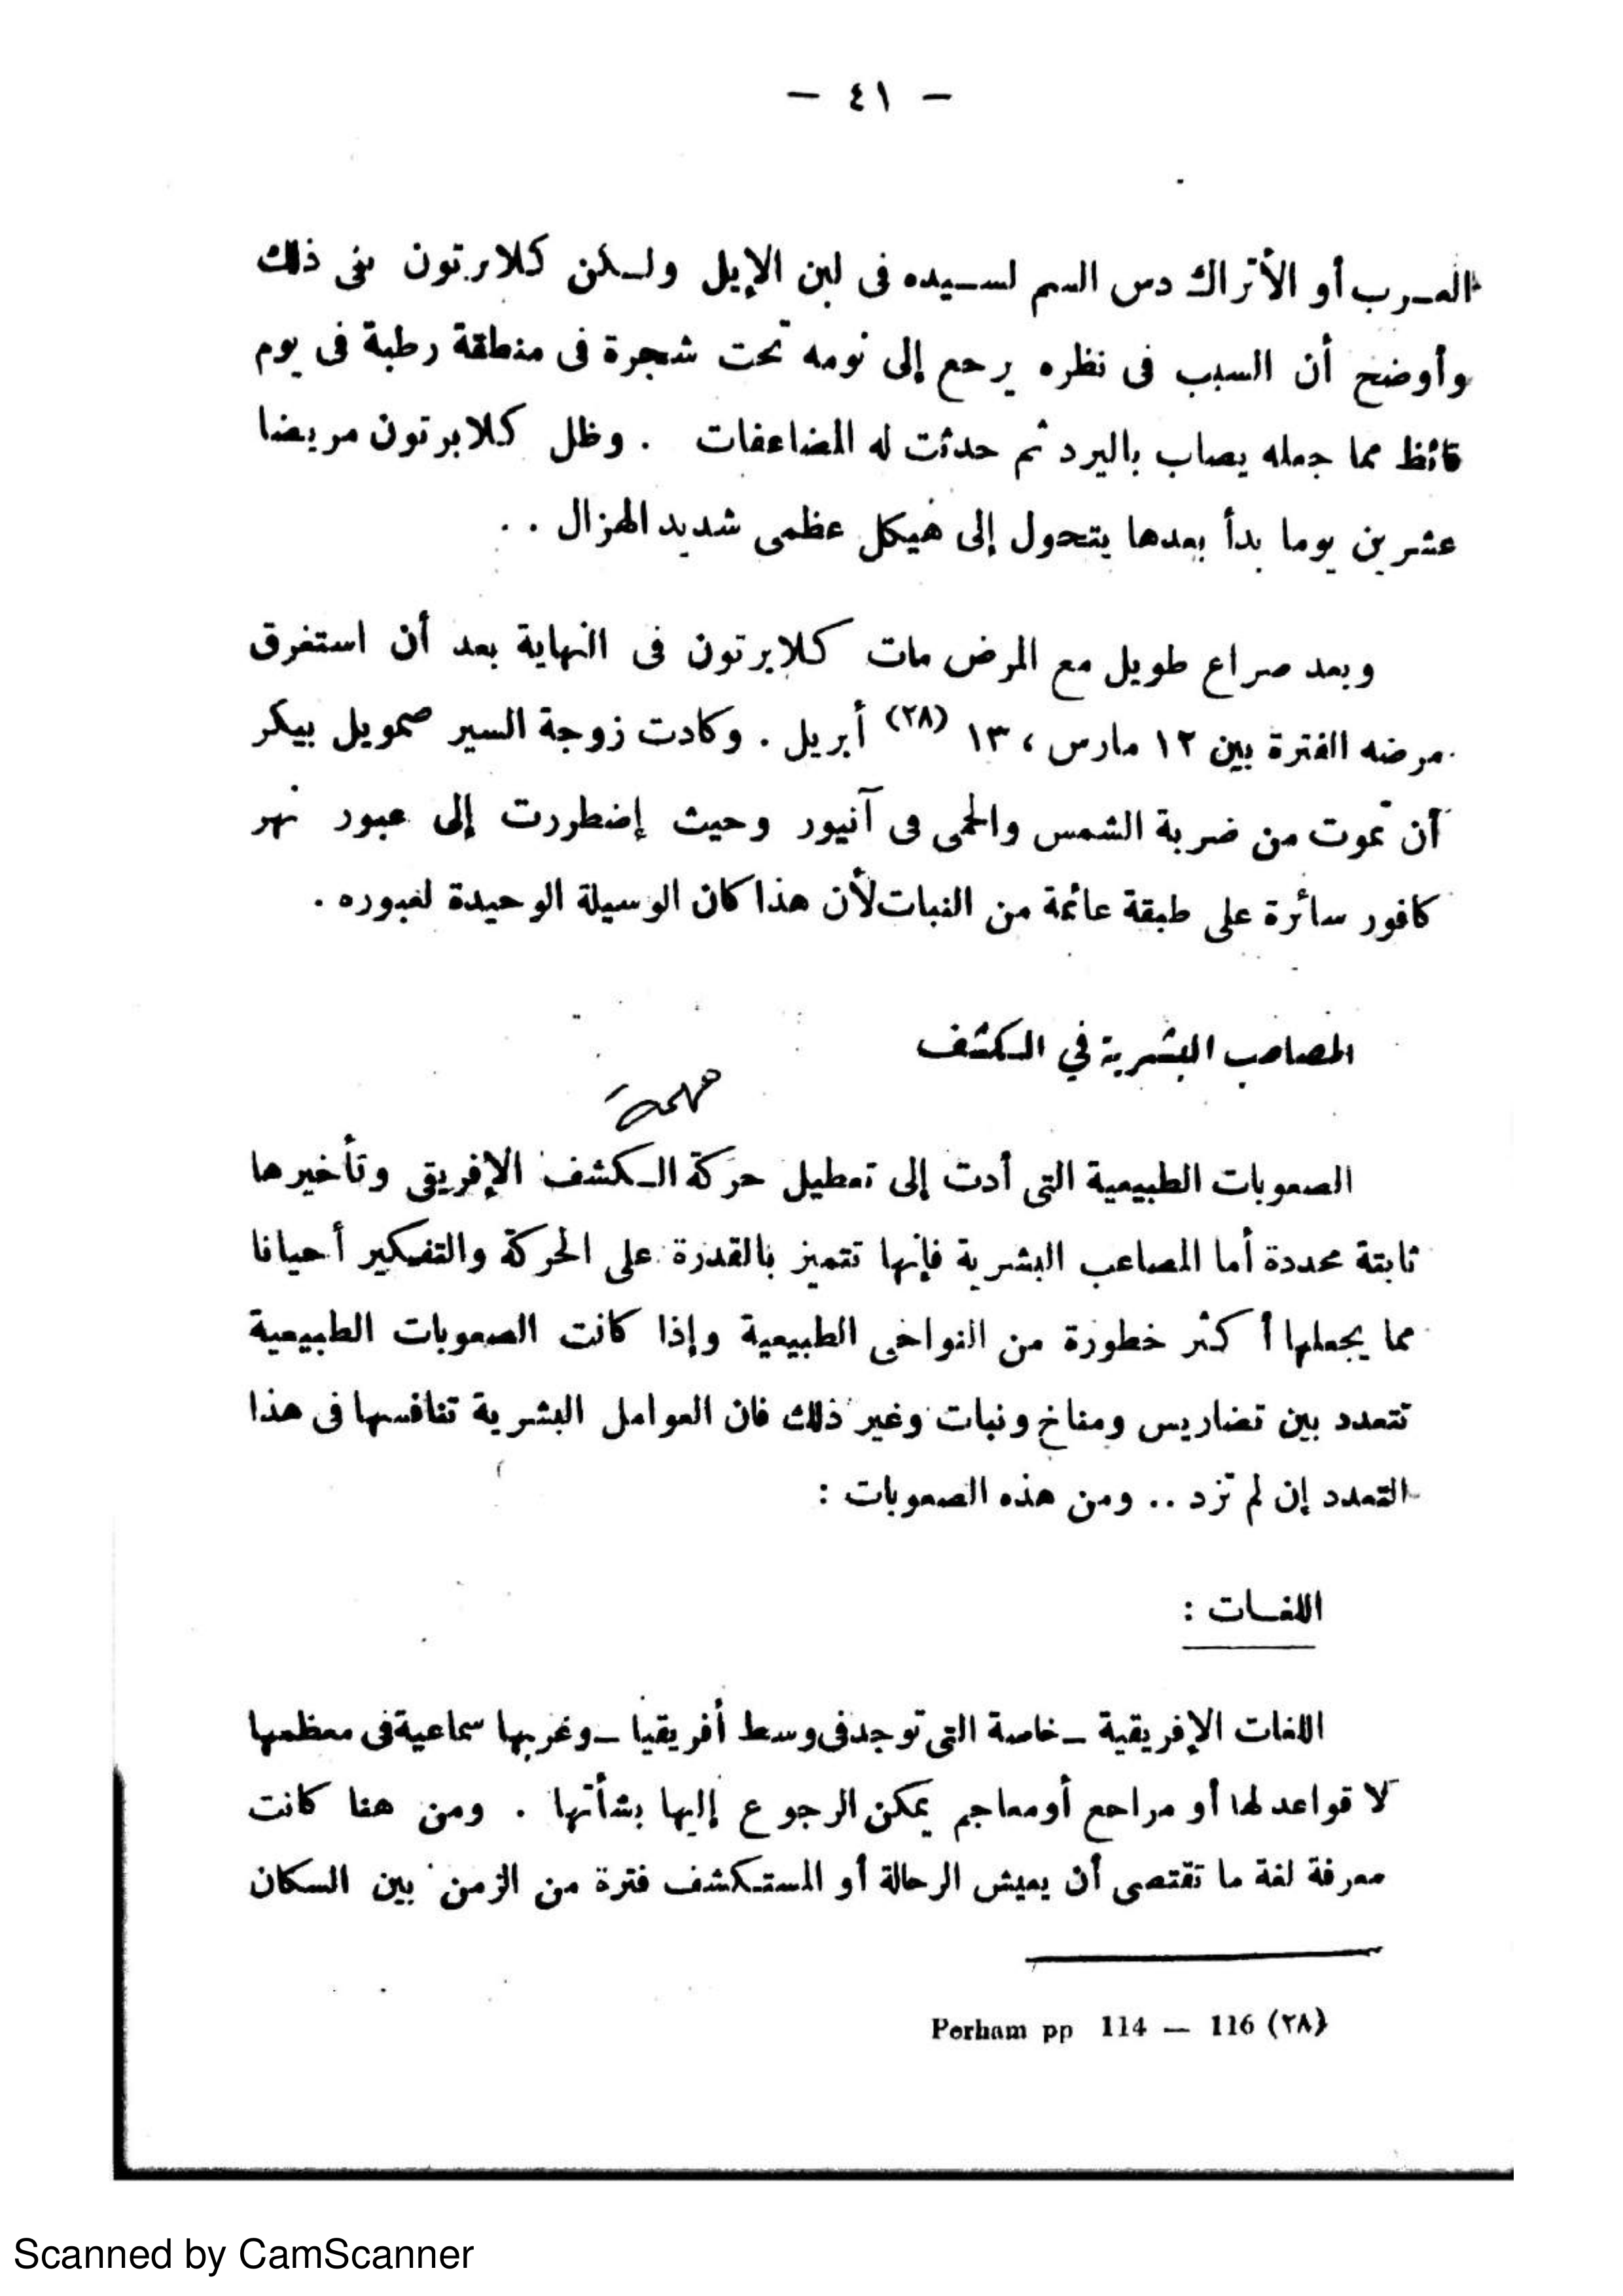 — ٤١ —
العرب أو الأتراك دس السم لسيده فى لبن الإبل ولكن كلابرتون نفى ذلك
وأوضح أن السبب فى نظره يرجع إلى نومه تحت شجرة فى منطقة رطبة فى يوم
قائظ مما جعله يصاب بالبرد ثم حدثت له المضاعفات . وظل كلابرتون مريضا
عشرين يوما بدأ بعدها يتحول إلى هيكل عظمى شديد الهزال . .
وبعد صراع طويل مع المرض مات كلابرتون فى النهاية بعد أن استغرق
مرضه الفترة بين ١٢ مارس ، ١٣ (٢٨) أبريل . وكادت زوجة السير صمويل بيكر
أن تموت من ضربة الشمس والحمى فى آنيور وحيث إضطررت إلى عبور نهر
كافور سائرة على طبقة عائمة من النبات لأن هذا كان الوسيلة الوحيدة لعبوره .
المصاعب البشرية في الكشف
مهمة
الصعوبات الطبيعية التى أدت إلى تعطيل حركة الكشف الإفريقى وتأخيرها
ثابتة محددة أما المصاعب البشرية فإنها تتميز بالقدرة على الحركة والتفكير أحيانا
مما يجعلها أكثر خطورة من النواحى الطبيعية وإذا كانت الصعوبات الطبيعية
تتعدد بين تضاريس ومناخ ونبات وغير ذلك فان العوامل البشرية تنافسها فى هذا
التعدد إن لم تزد .. ومن هذه الصعوبات :
اللغات :
اللغات الإفريقية – خاصة التى توجد فى وسط أفريقيا – وغربها سماعية فى معظمها
لا قواعد لها أو مراجع أو معاجم يمكن الرجوع إليها بشأنها . ومن هنا كانت
معرفة لغة ما تقتصى أن يعيش الرحالة أو المستكشف فترة من الزمن بين السكان
(٢٨) Perham pp 114 — 116
Scanned by CamScanner